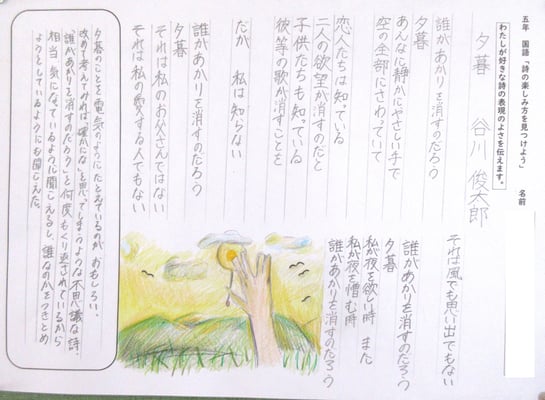 五年 国語「詩の楽しみ方を見つけよう」
名前
わたしが好きな詩の表現のよさを伝えます。
夕暮 谷川 俊太郎
誰があかりを消すのだろう
夕暮
あんなに静かにやさしい手で
空の全部にさわっていて
恋人たちは知っている
二人の欲望が消すのだと
子供たちも知っている
彼等の歌が消すことを
だが 私は知らない
誰があかりを消すのだろう
夕暮
それは私のお父さんではない
それは私の愛する人でもない
それは風でも思い出でもない
誰があかりを消すのだろう
夕暮
私が夜を欲しい時 また
私が夜を憎む時
誰があかりを消すのだろう
夕暮のことを電気のようにたとえているのがおもしろい。
改めて考えてみれば、「確かにな」と思ってしまうような不思議な詩。
「誰があかりを消すのだろう」と何度もくり返されているから
相当気になっているように聞こえるし、誰なのかをつきとめ
ようとしているようにも聞こえた。